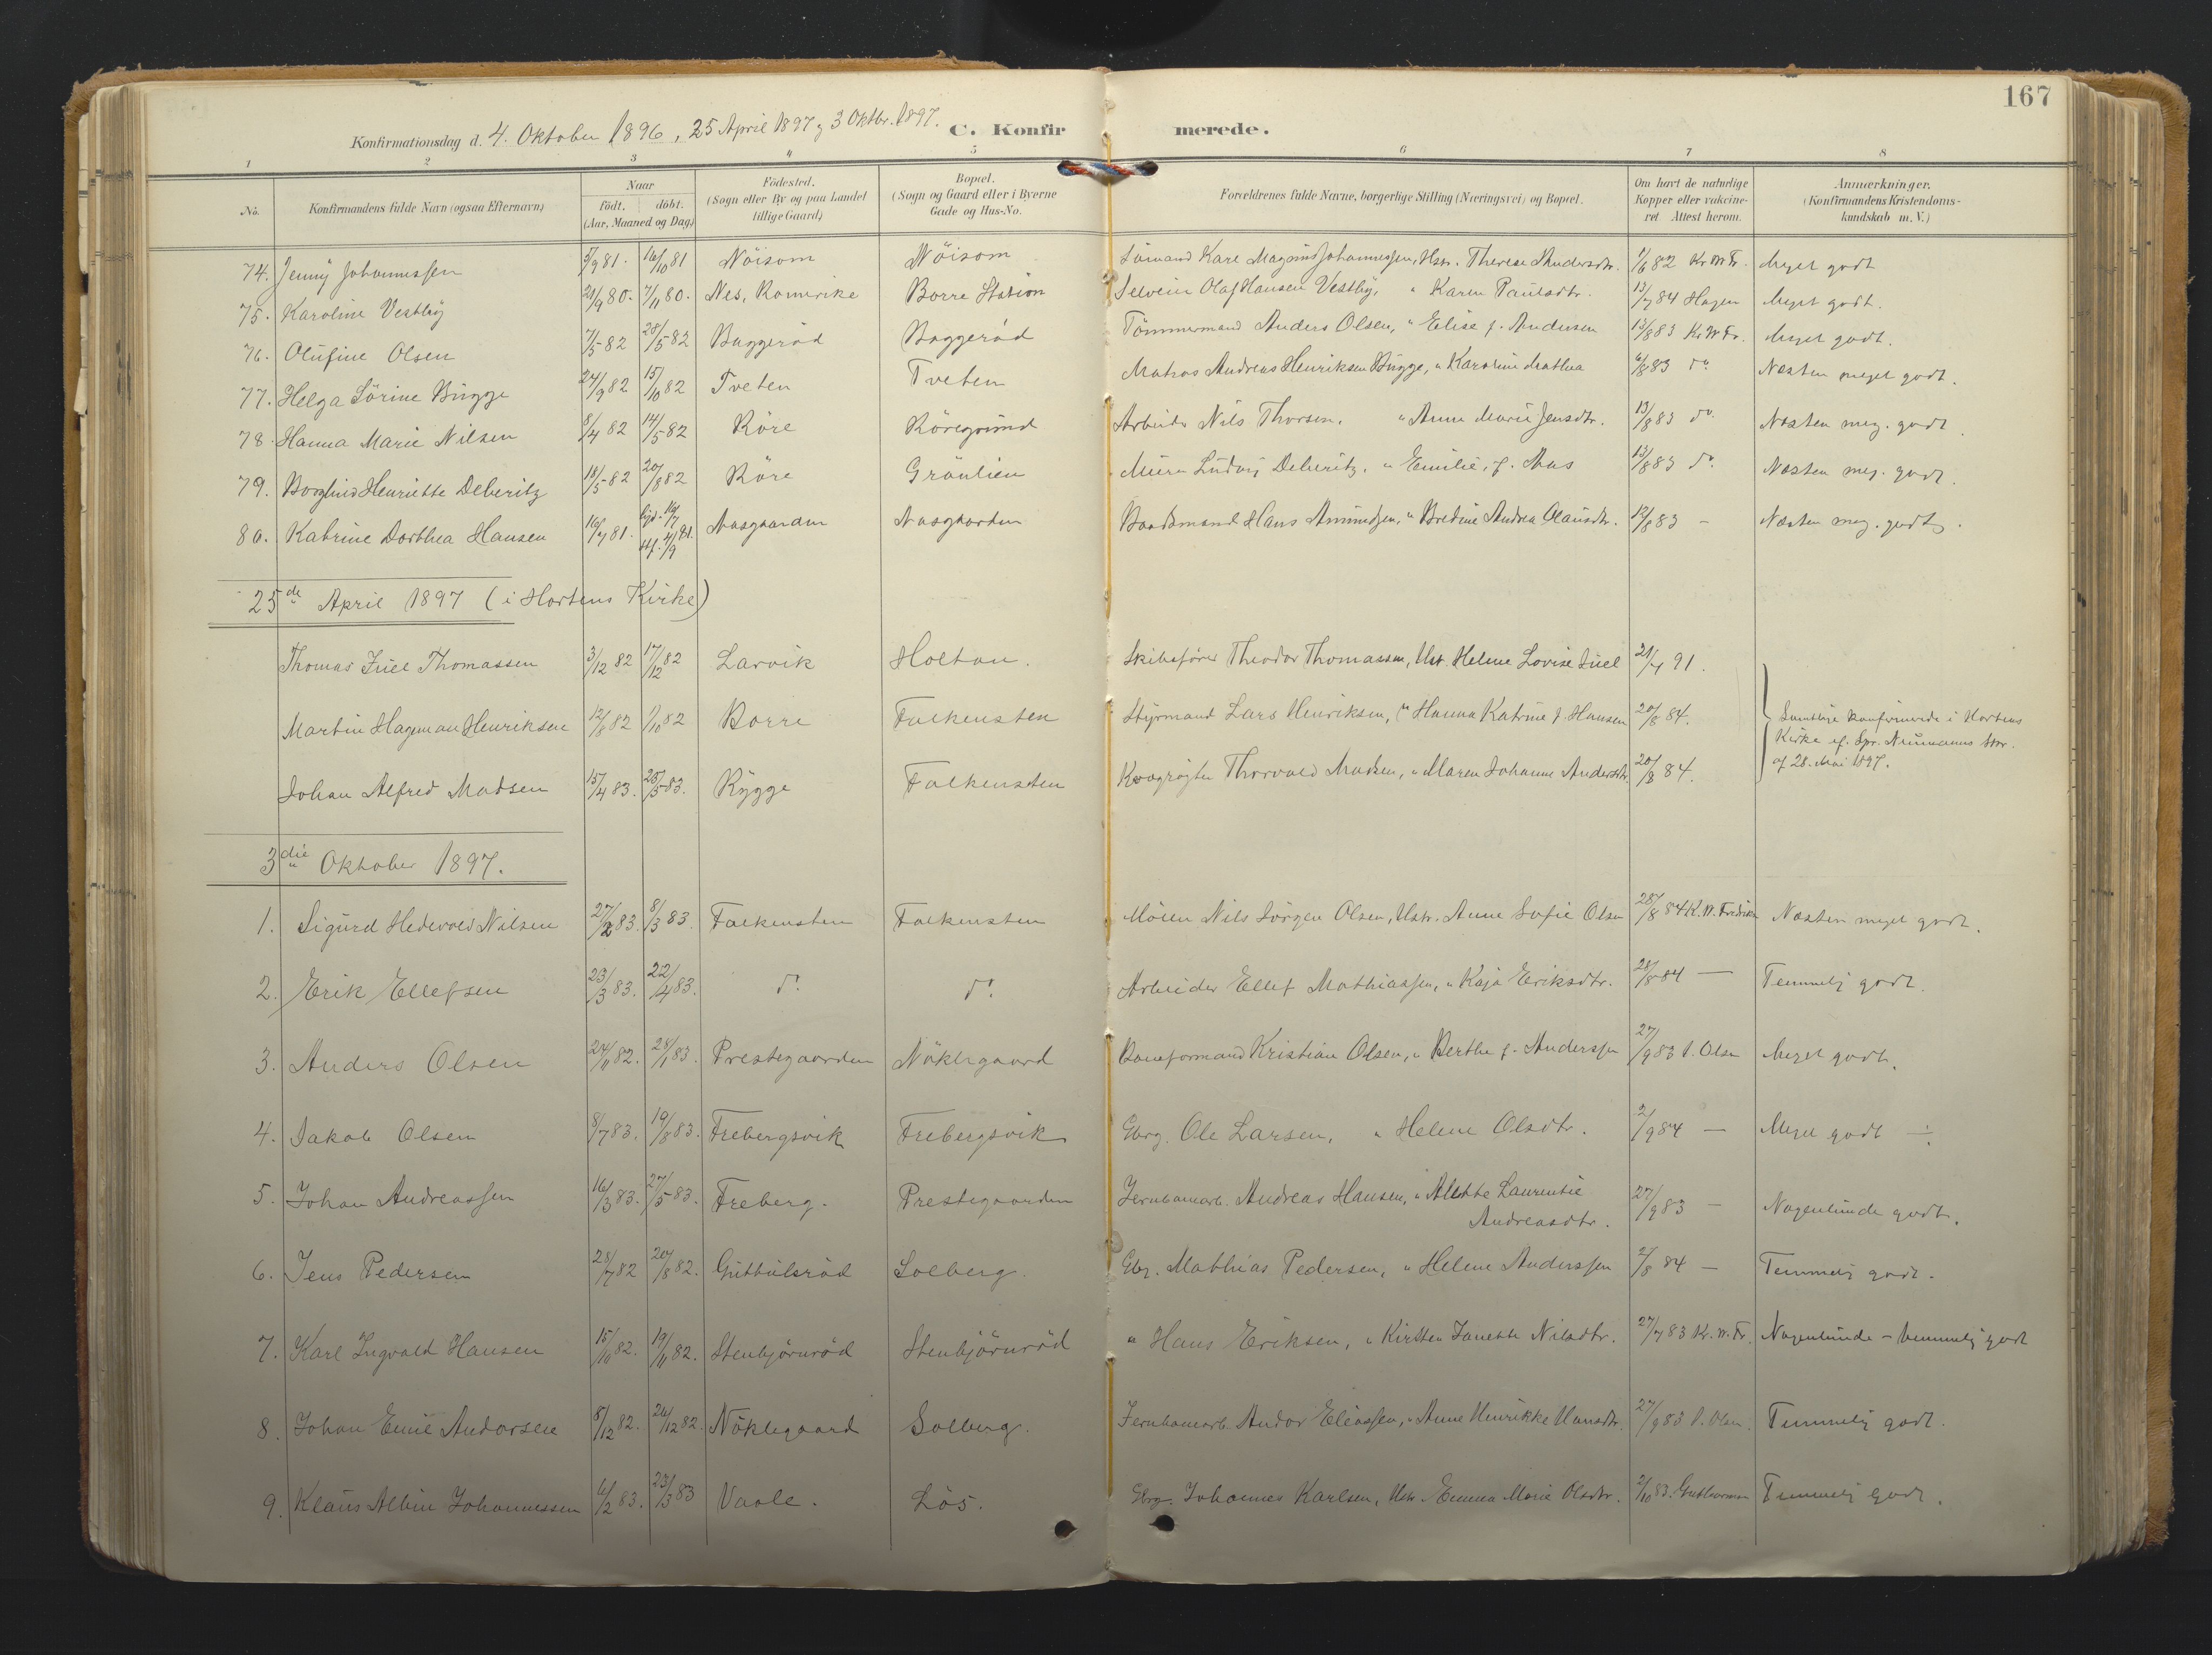 167
Konfirmationsdag d. 4. Oktober 1896, 25 April 1897 & 3 Oktbr. 1897. C. Konfirmerede.
1 2 3 4 5 6 7 8
No. Konfirmandens fulde Navn (ogsaa Efternavn) Naar født. døbt. (Aar, Maaned og Dag) Fødested. (Sogn eller By og paa Landet tillige Gaard) Bopæl. (Sogn og Gaard eller i Byerne Gade og Hus-No. Forældrenes fulde Navne, borgerlige Stilling (Næringsvei) og Bopæl. Om havt de naturlige Kopper eller vakcineret. Attest herom. Anmærkninger. (Konfirmandens Kristendomskundskab m. V.)
74. Jenny Johannessen 5/9 81. 16/10 81 Nöisom Nöisom Sömand Karl Magnus Johannessen, Hstr. Therese Andersdtr. 1/6 82 Kr W Fr. Meget godt
75. Karoline Vestby 21/9 80. 7/11 80. Nes, Romerike Borre Station Selveier Olaf Hansen Vestby, " Karen Paulsdtr. 13/7 84 Hagen Meget godt.
76. Olufine Olsen 7/5 82 28/5 82 Baggeröd Baggeröd Tömmermand Anders Olsen, " Elise f. Andersen 13/8 83 Kr W Fr. Meget godt.
77. Helga Sörine Bugge 24/9 82 15/10 82 Tveten Tveten Matros Andreas Henriksen Bugge, " Karoline Mathea 6/8 83 do Næsten meget godt.
78. Hanna Marie Nilsen 8/4 82 14/5 82 Röre Röregrund Arbeider Nils Thorsen, " Anne Marie Jensdtr. 13/8 83 do Næsten meg. godt.
79. Borghild Henriette Deberitz 18/5 82 20/8 82 Röre Grönlien Murer Ludvig Deberitz, " Emilie, f. Aas 13/8 83 do Næsten meg. godt.
80. Katrine Dorthea Hansen 16/7 81. hjd. 19/7 stf. 4/9 81. Aasgaarden Aasgaarden Baadsmand Hans Amundsen, " Bredine Andrea Olausdtr. 12/8 83 - Næsten meg. godt.
25de April 1897 (i Hortens Kirke)
Thomas Juel Thomassen 3/12 82 17/12 82 Larvik Holtan. Skibsförer Theodor Thomassen, Hstr. Helene Lovise Juel 21/4 91.
Martin Hagmann Henriksen 12/8 82 1/10 82 Borre Falkensten Styrmand Lars Henriksen, " Hanna Katrine f. Hansen 20/8 84. Samtlige konfirmerede i Hortens
Kirke ef. Spr. Neumanns
af 28. Mai 1897.
Johan Alfred Madsen 15/4 83. 25/5 83. Rygge Falkensten Kvægrögter Thorvald Madsen, " Maren Johanne Andersdtr. 20/8 84.
3die Oktober 1897.
1. Sigurd Hedevold Nilsen 27/2 83. 8/3 83. Falkensten Falkensten Möller Nils Jörgen Olsen, Hstr. Anne Sofie Olsen 28/8 84 K. W. Fredriksen Næsten meget godt.
2. Erik Ellefsen 23/3 83. 22/4 83. do do Arbeider Ellef Mathiassen, " Kaja Eriksdtr. 28/8 84 — Temmelig godt.
3. Anders Olsen 24/11 82. 28/1 83. Prestegaarden Nöklegaard Baneformand Kristian Olsen, " Berthe f. Anderssen 27/9 83 P. Olsen Meget godt.
4. Jakob Olsen 8/7 83. 19/8 83. Frebergsvik Frebergsvik Gbrg. Ole Larsen, " Helene Olsdtr. 2/9 84 — Meget godt ÷
5. Johan Andreassen 16/3 83. 27/5 83. Freberg. Prestegaarden Jernbanearb. Andreas Hansen, " Alethe Laurentie
Andreasdtr. 27/9 83 - Nogenlunde godt.
6. Jens Pedersen 28/7 82 20/8 82. Gutbulsröd Solberg. Gbr. Mathias Pedersen, " Helene Anderssen 2/8 84 — Temmelig godt.
7. Karl Ingvald Hansen 15/10 82. 19/11 82. Stenbjörnröd Stenbjörnröd " Hans Eriksen, " Kirsten Janette Nilsdtr. 27/7 83 Kr. W. Fr. Nogenlunde - temmelig godt
8. Johan Emil Andorsen 8/12 82. 26/12 82. Nöklegaard Solberg. Jernbanearb. Andor Eliassen, " Anne Henrikke Hansdtr. 27/9 83 P. Olsen. Temmelig godt.
9. Klaus Albin Johannessen 6/2 83. 23/3 83 Vaale. Lös. Gbrg. Johannes Karlsen, Hstr. Emma Marie Olsdtr. 2/10 83. Guthormsen Temmelig godt.